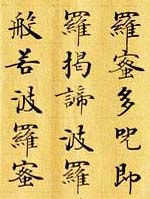 羅蜜多咒即
羅揭諦波羅
般若波羅蜜